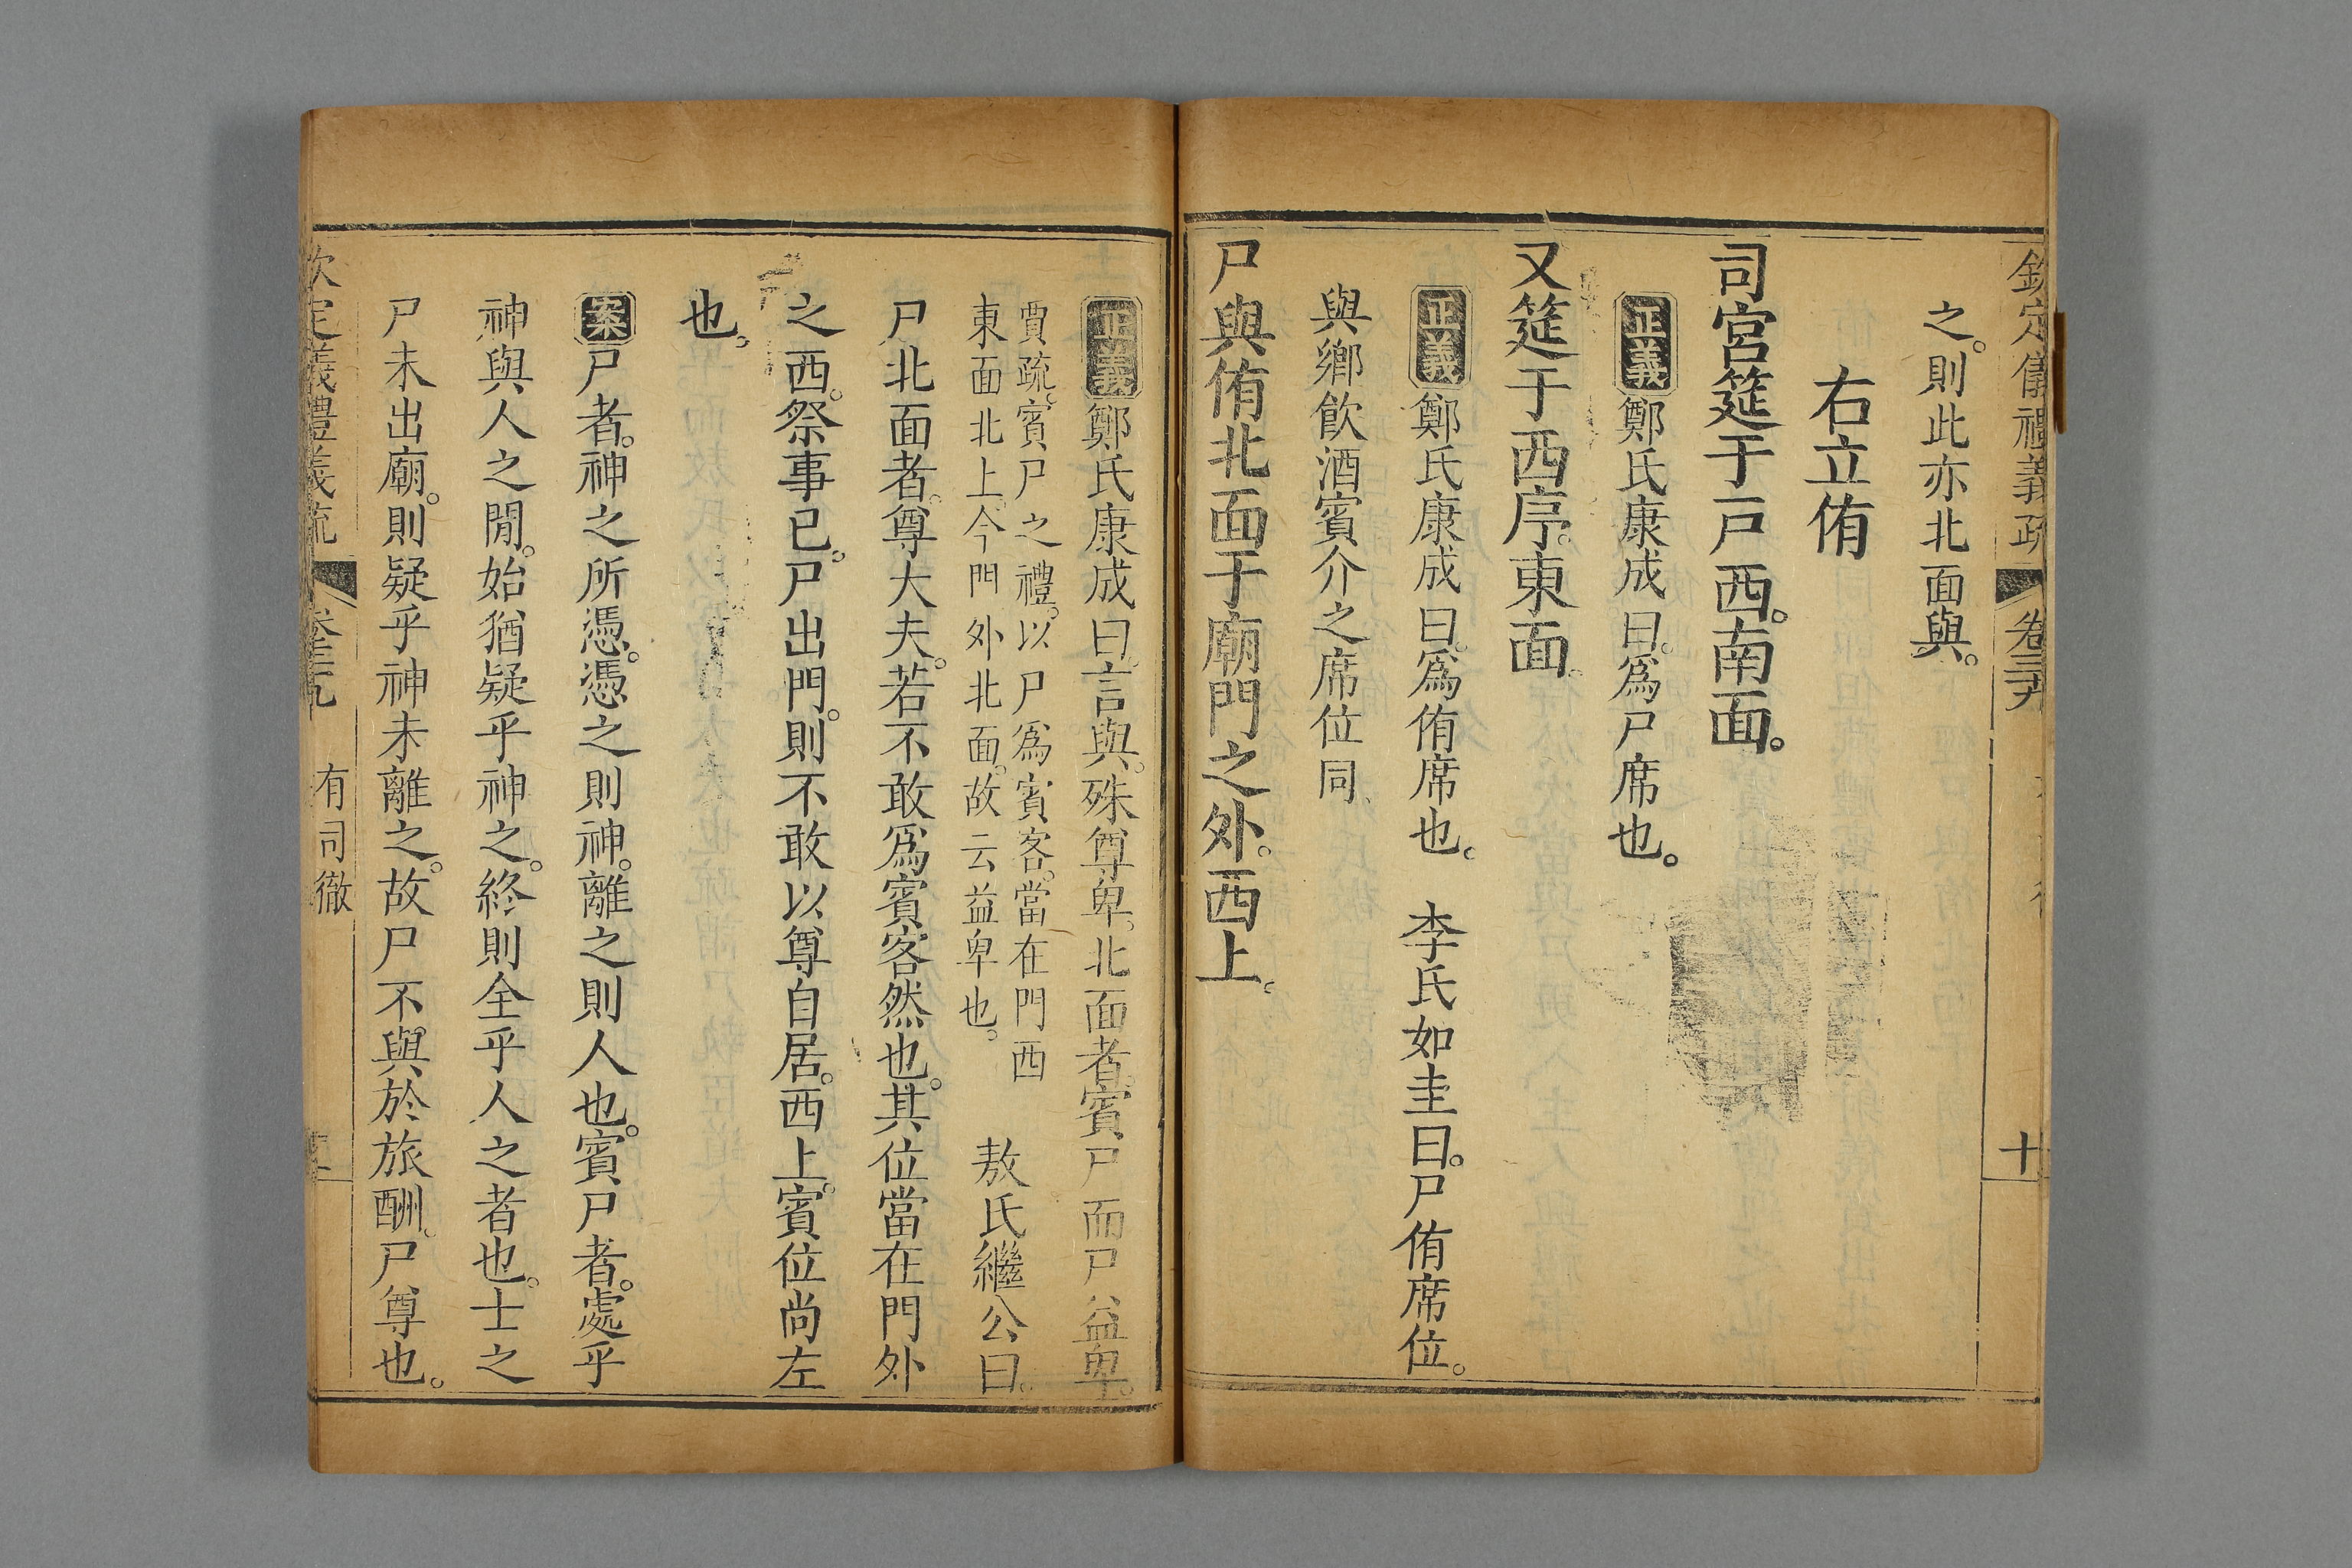 欽定儀禮義疏 卷三十九 十
之。則此亦北面與。
右立侑
司宮筵于戸西。南面。
正義鄭氏康成曰。爲尸席也。
又筵于西序。東面。
正義鄭氏康成曰。爲侑席也。 李氏如圭曰。尸侑席位。
與鄉飲酒賓介之席位同
尸與侑北面于廟門之外。西上。
正義鄭氏康成曰。言與。殊尊卑。北面者。賓尸而尸益卑。
賈疏。賓尸之禮。以尸爲賓客。當在門西
東面北上。今門外北面。故云益卑也。
敖氏繼公曰。
尸北面者。尊大夫。若不敢爲賓客然也。其位當在門外
之西。祭事已。尸出門。則不敢以尊自居。西上。賓位尚左
也。
案尸者。神之所憑。憑之則神。離之則人也。賓尸者。處乎
神與人之閒。始猶疑乎神之。終則全乎人之者也。士之
尸未出廟。則疑乎神未離之。故尸不與於旅酬。尸尊也。
欽定儀禮義疏 有司徹